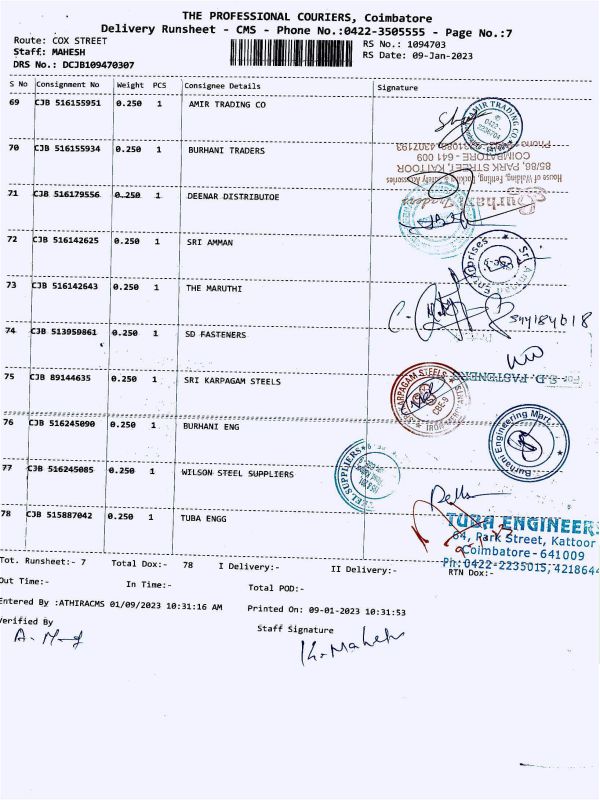 THE PROFESSIONAL COURIERS, Coimbatore
Delivery Runsheet - CMS - Phone No.:0422-3505555 - Page No.:7
Route: COX STREET
RS No.: 1094703
Staff: MAHESH
RS Date: 09-Jan-2023
DRS No.: DCJB109470307
S No Consignment No Weight PCS Consignee Details Signature
69 CJB 516155951 0.250 1 AMIR TRADING CO
70 CJB 516155934 0.250 1 BURHANI TRADERS
71 CJB 516179556 0.250 1 DEENAR DISTRIBUTOE
72 CJB 516142625 0.250 1 SRI AMMAN
73 CJB 516142643 0.250 1 THE MARUTHI
74 CJB 513959861 0.250 1 SD FASTENERS
75 CJB 89144635 0.250 1 SRI KARPAGAM STEELS
76 CJB 516245090 0.250 1 BURHANI ENG
77 CJB 516245085 0.250 1 WILSON STEEL SUPPLIERS
78 CJB 515887042 0.250 1 TUBA ENGG
AMIR TRADING CO.
COIMBATORE - 641 009
85/88, PARK STREET, KATTOOR
Burhani Traders
Sri Amman Enterprises
S. D. FASTENERS
KARPAGAM STEELS
CBE-9
Burhani Engineering Mart
STEEL SUPPLIERS
TUBA ENGINEERS
64, Park Street, Kattoor
Coimbatore - 641009
Ph: 0422-2235015, 4218644
Tot. Runsheet:- 7 Total Dox:- 78 I Delivery:- II Delivery:- RTN Dox:-
Out Time:- In Time:- Total POD:-
Entered By :ATHIRACMS 01/09/2023 10:31:16 AM Printed On: 09-01-2023 10:31:53
Verified By Staff Signature
K. Mahesh